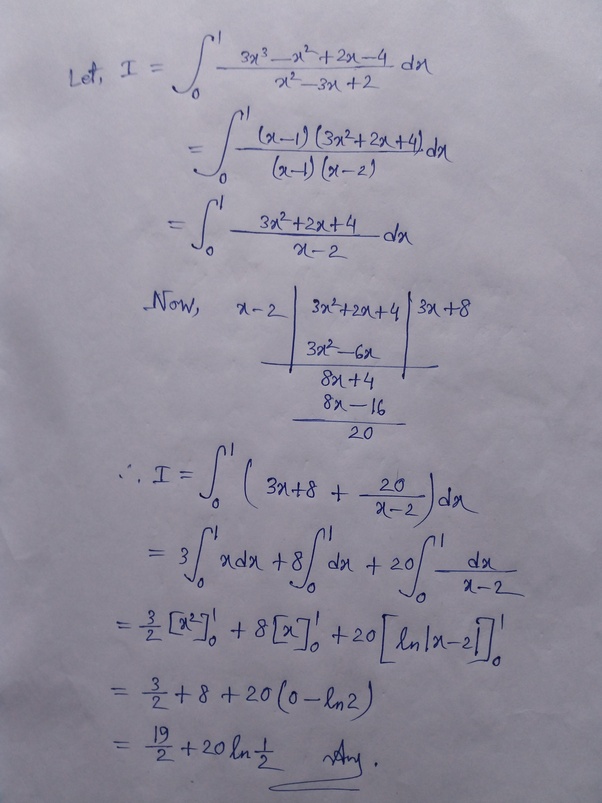 Let, I = ∫₀¹ (3x³ − x² + 2x − 4)/(x² − 3x + 2) dx
= ∫₀¹ (x−1)(3x²+2x+4)/((x−1)(x−2)) dx
= ∫₀¹ (3x²+2x+4)/(x−2) dx
Now, x−2 | 3x²+2x+4 | 3x+8
3x²−6x
8x+4
8x−16
20
∴ I = ∫₀¹ (3x+8 + 20/(x−2)) dx
= 3∫₀¹ xdx + 8∫₀¹ dx + 20∫₀¹ dx/(x−2)
= 3/2 [x²]₀¹ + 8[x]₀¹ + 20[ln|x−2|]₀¹
= 3/2 + 8 + 20(0−ln2)
= 19/2 + 20 ln 1/2 Ans.